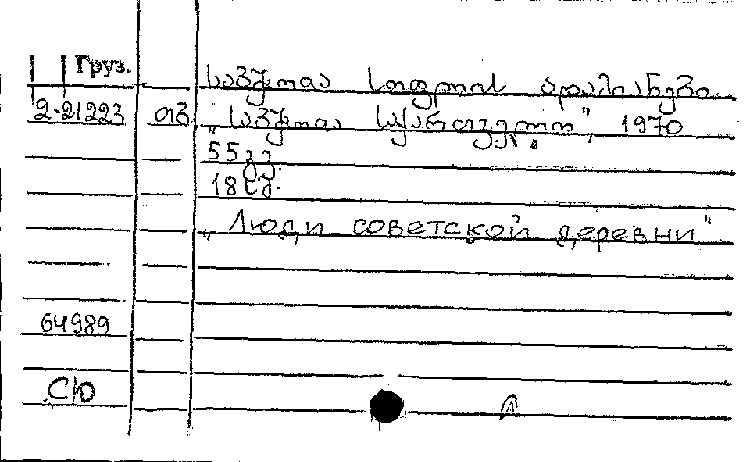 Груз.
საბჭოთა სოფლის ადამიანები.
2-21223 თბ. „საბჭოთა საქართველო", 1970
55 გვ.
18 სმ.
„Люди советской деревни"
64989
СЮ